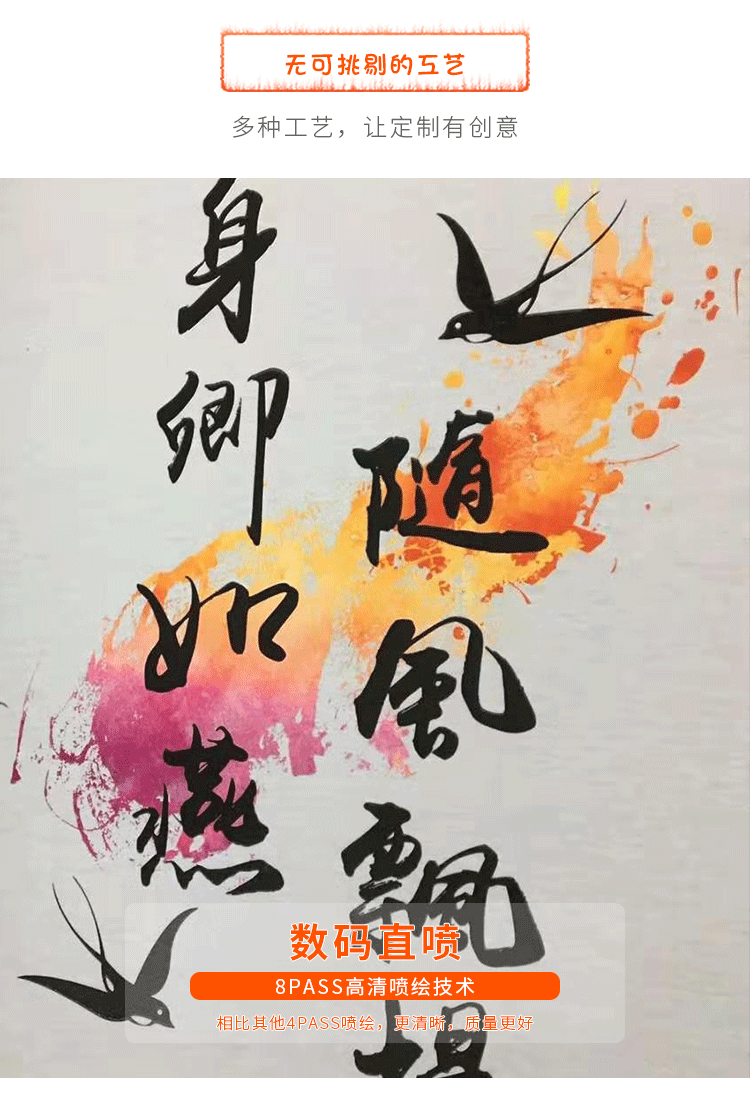 无可挑剔的互艺
多种工艺，让定制有创意
随風飄
身卿如燕
数码直喷
8PASS高清喷绘技术
相比其他4PASS喷绘，更清晰，质量更好